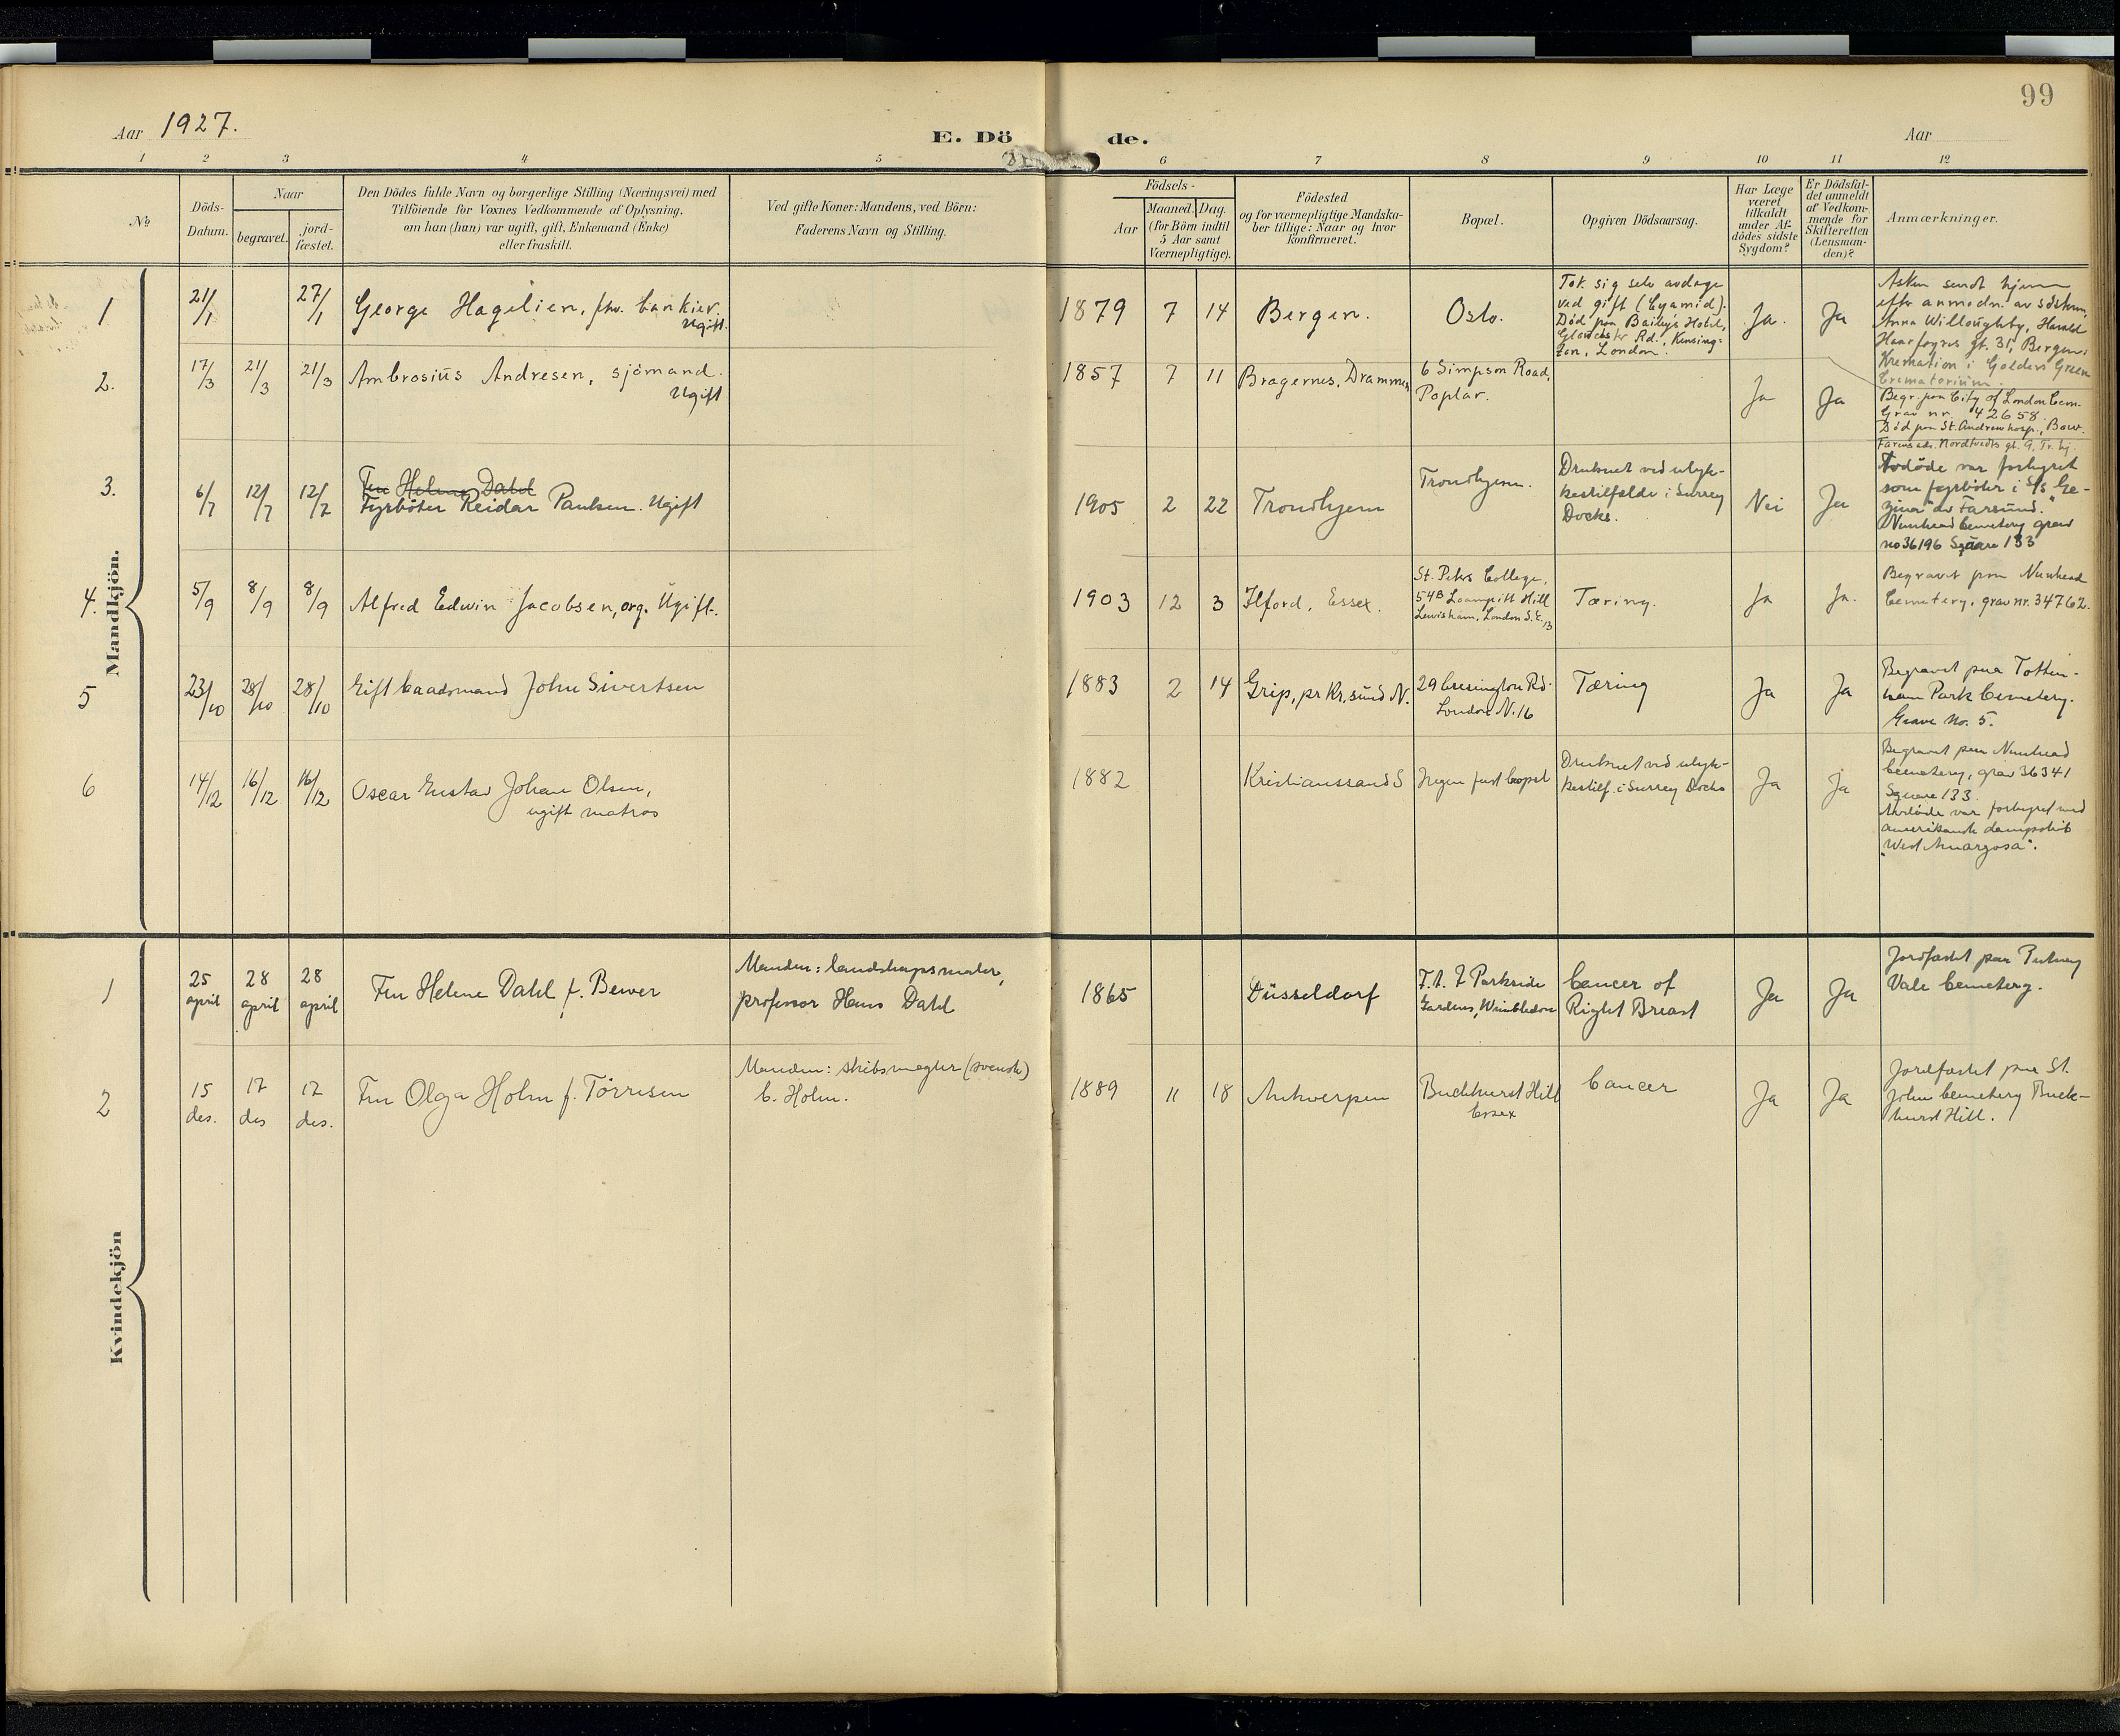 99
Aar 1927.
E. Döde.
Aar
1 2 3 4 5 6 7 8 9 10 11 12
No
Döds-
Datum.
Naar
begravet.
jord-
fæstet.
Den Dödes fulde Navn og borgerlige Stilling (Næringsvei) med
Tilföiende for Voxnes Vedkommende af Oplysning,
om han (hun) var ugift, gift, Enkemand (Enke)
eller fraskilt.
Ved gifte Koner: Mandens, ved Börn:
Faderens Navn og Stilling.
Födsels-
Aar
Maaned. Dag.
(for Börn indtil
5 Aar samt
Værnepligtige).
Födested
og for værnepligtige Mandska-
ber tillige: Naar og hvor
konfirmeret.
Bopæl.
Opgiven Dödsaarsag.
Har Læge
været
tilkaldt
under Af-
dödes sidste
Sygdom?
Er Dödsfal-
det anmeldt
af Vedkom-
mende for
Skifteretten
(Lensman-
den)?
Anmærkninger.
Mandkjön.
1
21/1
27/1
George Hagelien, fhv. bankier.
Ugift.
1879 7 14
Bergen.
Oslo.
Tok sig selv avdage
ved gift (Cyamid).
Død paa Bailey's Hotel,
Gloucester Rd., Kensing-
ton, London.
Ja.
Ja
Asken sendt hjem
efter anmodn. av søsteren,
Anna Willoughby, Harald
Haarfagres gt. 31, Bergen.
Kremation i Golders Green
Crematorium.
2.
17/3
21/3
21/3
Ambrosius Andresen, sjömand.
Ugift
1857 7 11
Bragernes, Drammen
6 Simpson Road,
Poplar.
Ja
Ja
Begr. paa City of London Cem.
Grav nr. 42658.
Död paa St. Andrews hosp., Bow.
3.
6/7
12/7
12/7
Fru Helene Dahl
Fyrböter Reidar Paulsen. Ugift
1905 2 22
Trondhjem
Trondhjem.
Druknet ved ulyk-
kestilfælde i Surrey
Docks.
Nei
Ja
Farens adr. Nordtvedts gt. 9, Tr. hj.
Avdöde var forhyret
som fyrböter i S/S "Ge-
zina" av Farsund.
Nunhead Cemetery grav
no 36196 Square 133
4.
5/9
8/9
8/9
Alfred Edwin Jacobsen, org. Ugift.
1903 12 3
Ilford, Essex.
St. Peters College,
54B Loampitt Hill
Lewisham, London S.E. 13
Tæring.
Ja
Ja.
Begravet paa Nunhead
Cemetery, grav nr. 34762.
5
23/10
28/10
28/10
Gift baadsmand John Sivertsen
1883 2 14
Grip, pr Kr.sund N.
29 Cressington Rd.
London N. 16
Tæring
Ja
Ja
Begravet paa Totten-
ham Park Cemetery.
Grave No. 5.
6
14/12
16/12
16/12
Oscar Gustav Johan Olsen,
ugift matros
1882
Kristianssand S
Ingen fast bopæl
Druknet ved ulyk-
kestilf. i Surrey Docks
Ja
Ja
Begravet paa Nunhead
Cemetery, grav 36341
Square 133.
Avdöde var forhyret med
amerikansk dampskib
"West Amargosa".
Kvindekjön
1
25
april
28
april
28
april
Fru Helene Dahl f. Bewer
Manden: landskapsmaler,
professor Hans Dahl
1865
Düsseldorf
Parkside
Gardens, Wimbledon
Cancer of
Right Breast
Ja
Ja
Jordfæstet paa Putney
Vale Cemetery.
2
15
des.
17
des
17
des.
Fru Olga Holm f. Törresen
Manden: skibsmegler (svensk)
C. Holm.
1889 11 18
Antwerpen
Buckhurst Hill
Essex
Cancer
Ja
Ja
Jordfæstet paa St.
John Cemetery Buck-
hurst Hill.